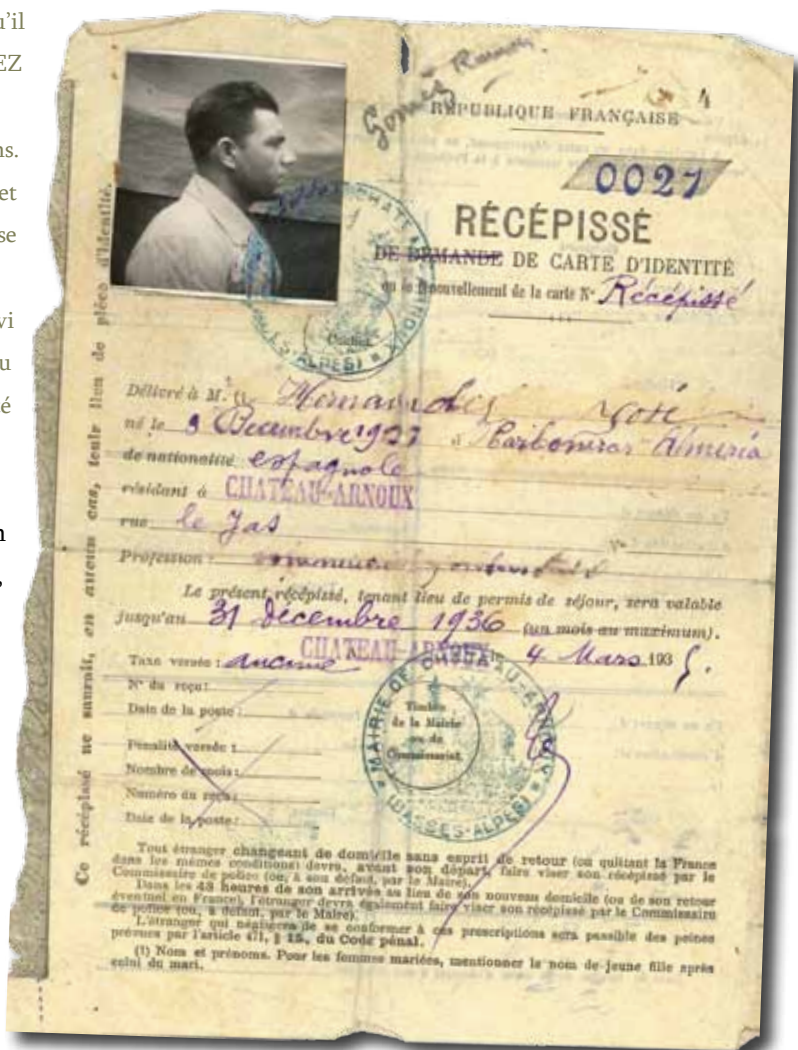 u'il
EZ
ns.
et
se
vi
u
é
n
,
Gomez Ramon
4
RÉPUBLIQUE FRANÇAISE
0021
RÉCÉPISSÉ
DE DEMANDE DE CARTE D'IDENTITÉ
ou le Renouvellement de la carte N° Récépissé
Cachet
(BASSES-ALPES)
Délivré à M. (1) Hernandez José
né le 9 Decembre à Carboneras Almeria
de nationalité espagnole
résidant à CHATEAU-ARNOUX
rue le Jas
Profession :
Le présent récépissé, tenant lieu de permis de séjour, sera valable
jusqu'au 31 décembre 1936 (un mois au maximum).
CHATEAU-ARNOUX le 4 Mars 1935.
Taxe versée : aucune
N° du reçu :
Date de la poste :
Pénalité versée :
Nombre de mois :
Numéro du reçu :
Date de la poste :
MAIRIE DE CHATEAU-ARNOUX
(BASSES-ALPES)
Timbre
de la Mairie
ou du
Commissariat.
Ce récépissé ne saurait, en aucun cas, tenir lieu de pièce d'identité.
Tout étranger changeant de domicile sans esprit de retour (ou quittant la France
dans les mêmes conditions) devra, avant son départ, faire viser son récépissé par le
Commissaire de police (ou, à son défaut, par le Maire).
Dans les 48 heures de son arrivée au lieu de son nouveau domicile (ou de son retour
éventuel en France), l'étranger devra également faire viser son récépissé par le Commissaire
de police (ou, à défaut, par le Maire).
L'étranger qui négligera de se conformer à ces prescriptions sera passible des peines
prévues par l'article 471, § 15, du Code pénal.
(1) Nom et prénoms. Pour les femmes mariées, mentionner le nom de jeune fille après
celui du mari.